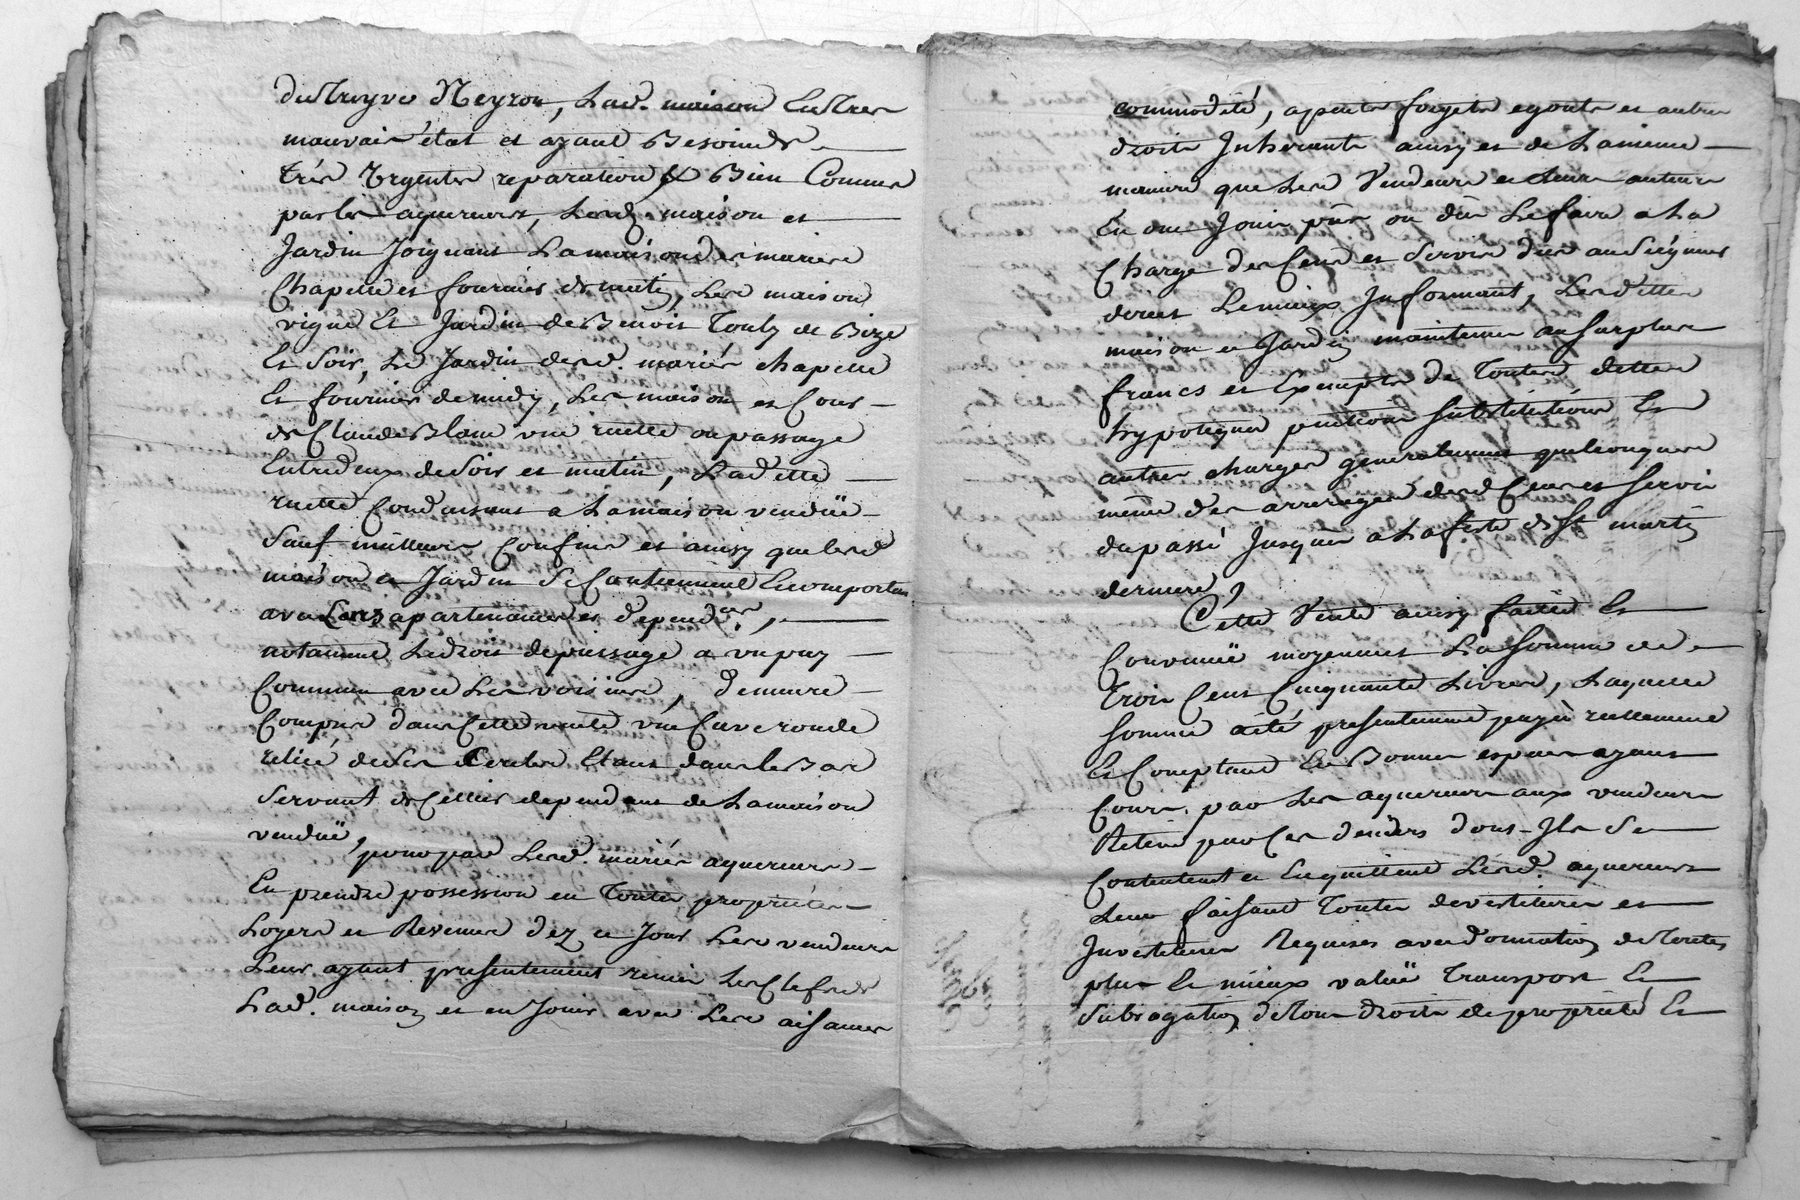 Neyron, Lad. maison En tres
mauvais état et ayant Besoin de
très Urgentes reparations, & Bien Connue
par les aquereurs, Lesd. maison et
Jardin Joignant La maison des mariés
Chapelle et fournier de matin, Les maison
vigne Et Jardin de Benoit de Bize
Et Soir, Le Jardin desd. mariés chapelle
Et fournier de midy, Les maison et Cour
de Claude Blanc une ruette ou passage
Entredeux de Soir et matin, Ladette
ruette Conduisant a La maison vendüe
Sauf meilleurs Confins et ainsy que lesd
maison et Jardin Se Contiennent Et comportent
avec Leurs apartenances et depend.ces,
notamment Le droit de passage a un puy
Commun avec Les voisins, demeure
Compris dans Cette vente une Cuve ronde
reliée de Ses Cercles Etant dans le Bas
Servant de Cellier dependant de La maison
vendüe, pour par Lesd. mariés aquereurs
En prendre possession en Toutes proprietés
Loyers et Revenus dez ce Jour Les vendeurs
Leurs ayant presentement remis Les Clefs de
Lad. maison et en Jouir avec Les aisances
commodité, forgets egouts et autres
droits Inherants ainsy et de La même
maniere que Lesd Vendeurs et Leurs auteurs
En ont Joui pûs ou dûs Le faire a La
Charge des Cens et Servis dûs au Seigneur
direct Le mieux Informant, Lesdittes
maison et Jardin maintenus au Surplus
francs et Exempts de Toutes dettes
hypoteques pentions Substitutions Et
autres charges generalement quelconques
même des arrerages desd Cens et Servis
du passé Jusques a La feste de St martin
derniere,
Cette Vente ainsy faitte Et
Convenuë moyennant La Somme de
Trois Cent Cinquante Livres, Laquelle
Somme a été presentement payée reellement
Et Comptant En Bonnes especes ayant
Cours par Les aquereurs aux vendeurs
Retirée par Ces derniers dont Ils Se
Contentent et En quittent Lesd. aquereurs
Leur faisant Toutes devestitures et
Investitures Requises avec donnation de Toutes
plus Et mieux valuë Transport Et
Subrogation de Tous droits de proprieté Et